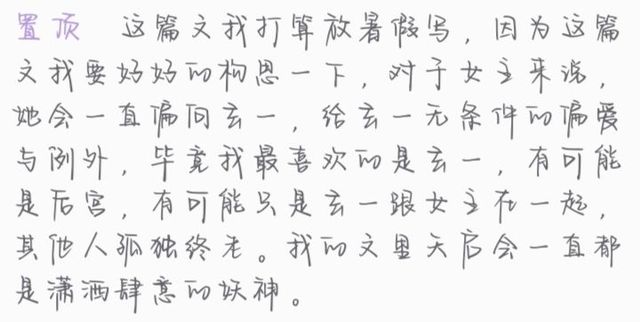 置顶 这篇文我打算放暑假写，因为这篇
文我要好好的构思一下，对于女主来说，
她会一直偏向玄一，给玄一无条件的偏爱
与例外，毕竟我最喜欢的是玄一，有可能
是后宫，有可能只是玄一跟女主在一起，
其他人孤独终老。我的文里天启会一直都
是潇洒肆意的妖神。